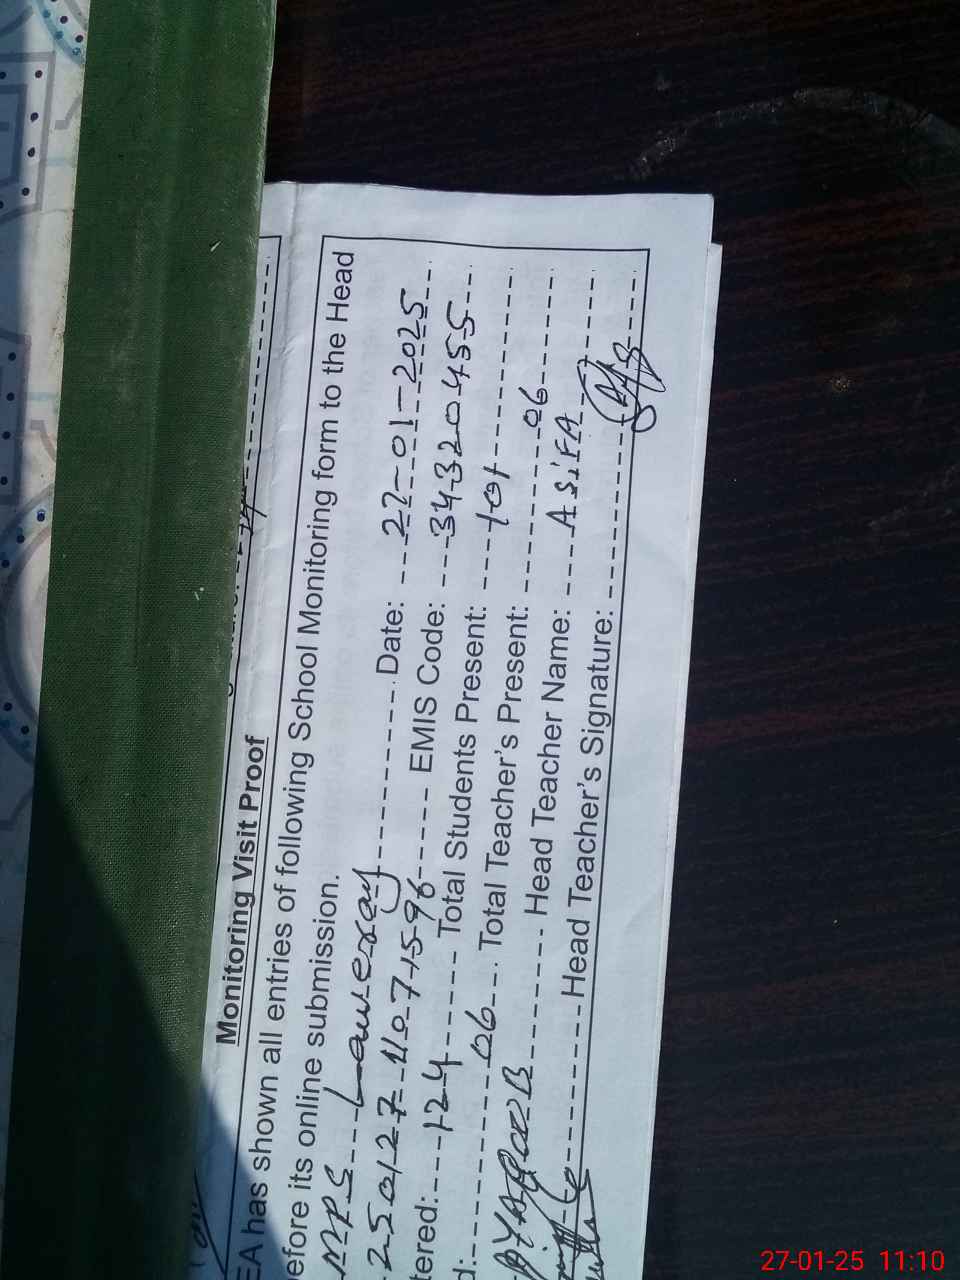 Monitoring Visit Proof
EA has shown all entries of following School Monitoring form to the Head
efore its online submission.
MPS Date: 27-01-2025
250127110711596 EMIS Code: 34320455
tered: 124 Total Students Present: 101
d: 06 Total Teacher's Present: 06
Head Teacher Name: ASiFA
Head Teacher's Signature:
27-01-25 11:10